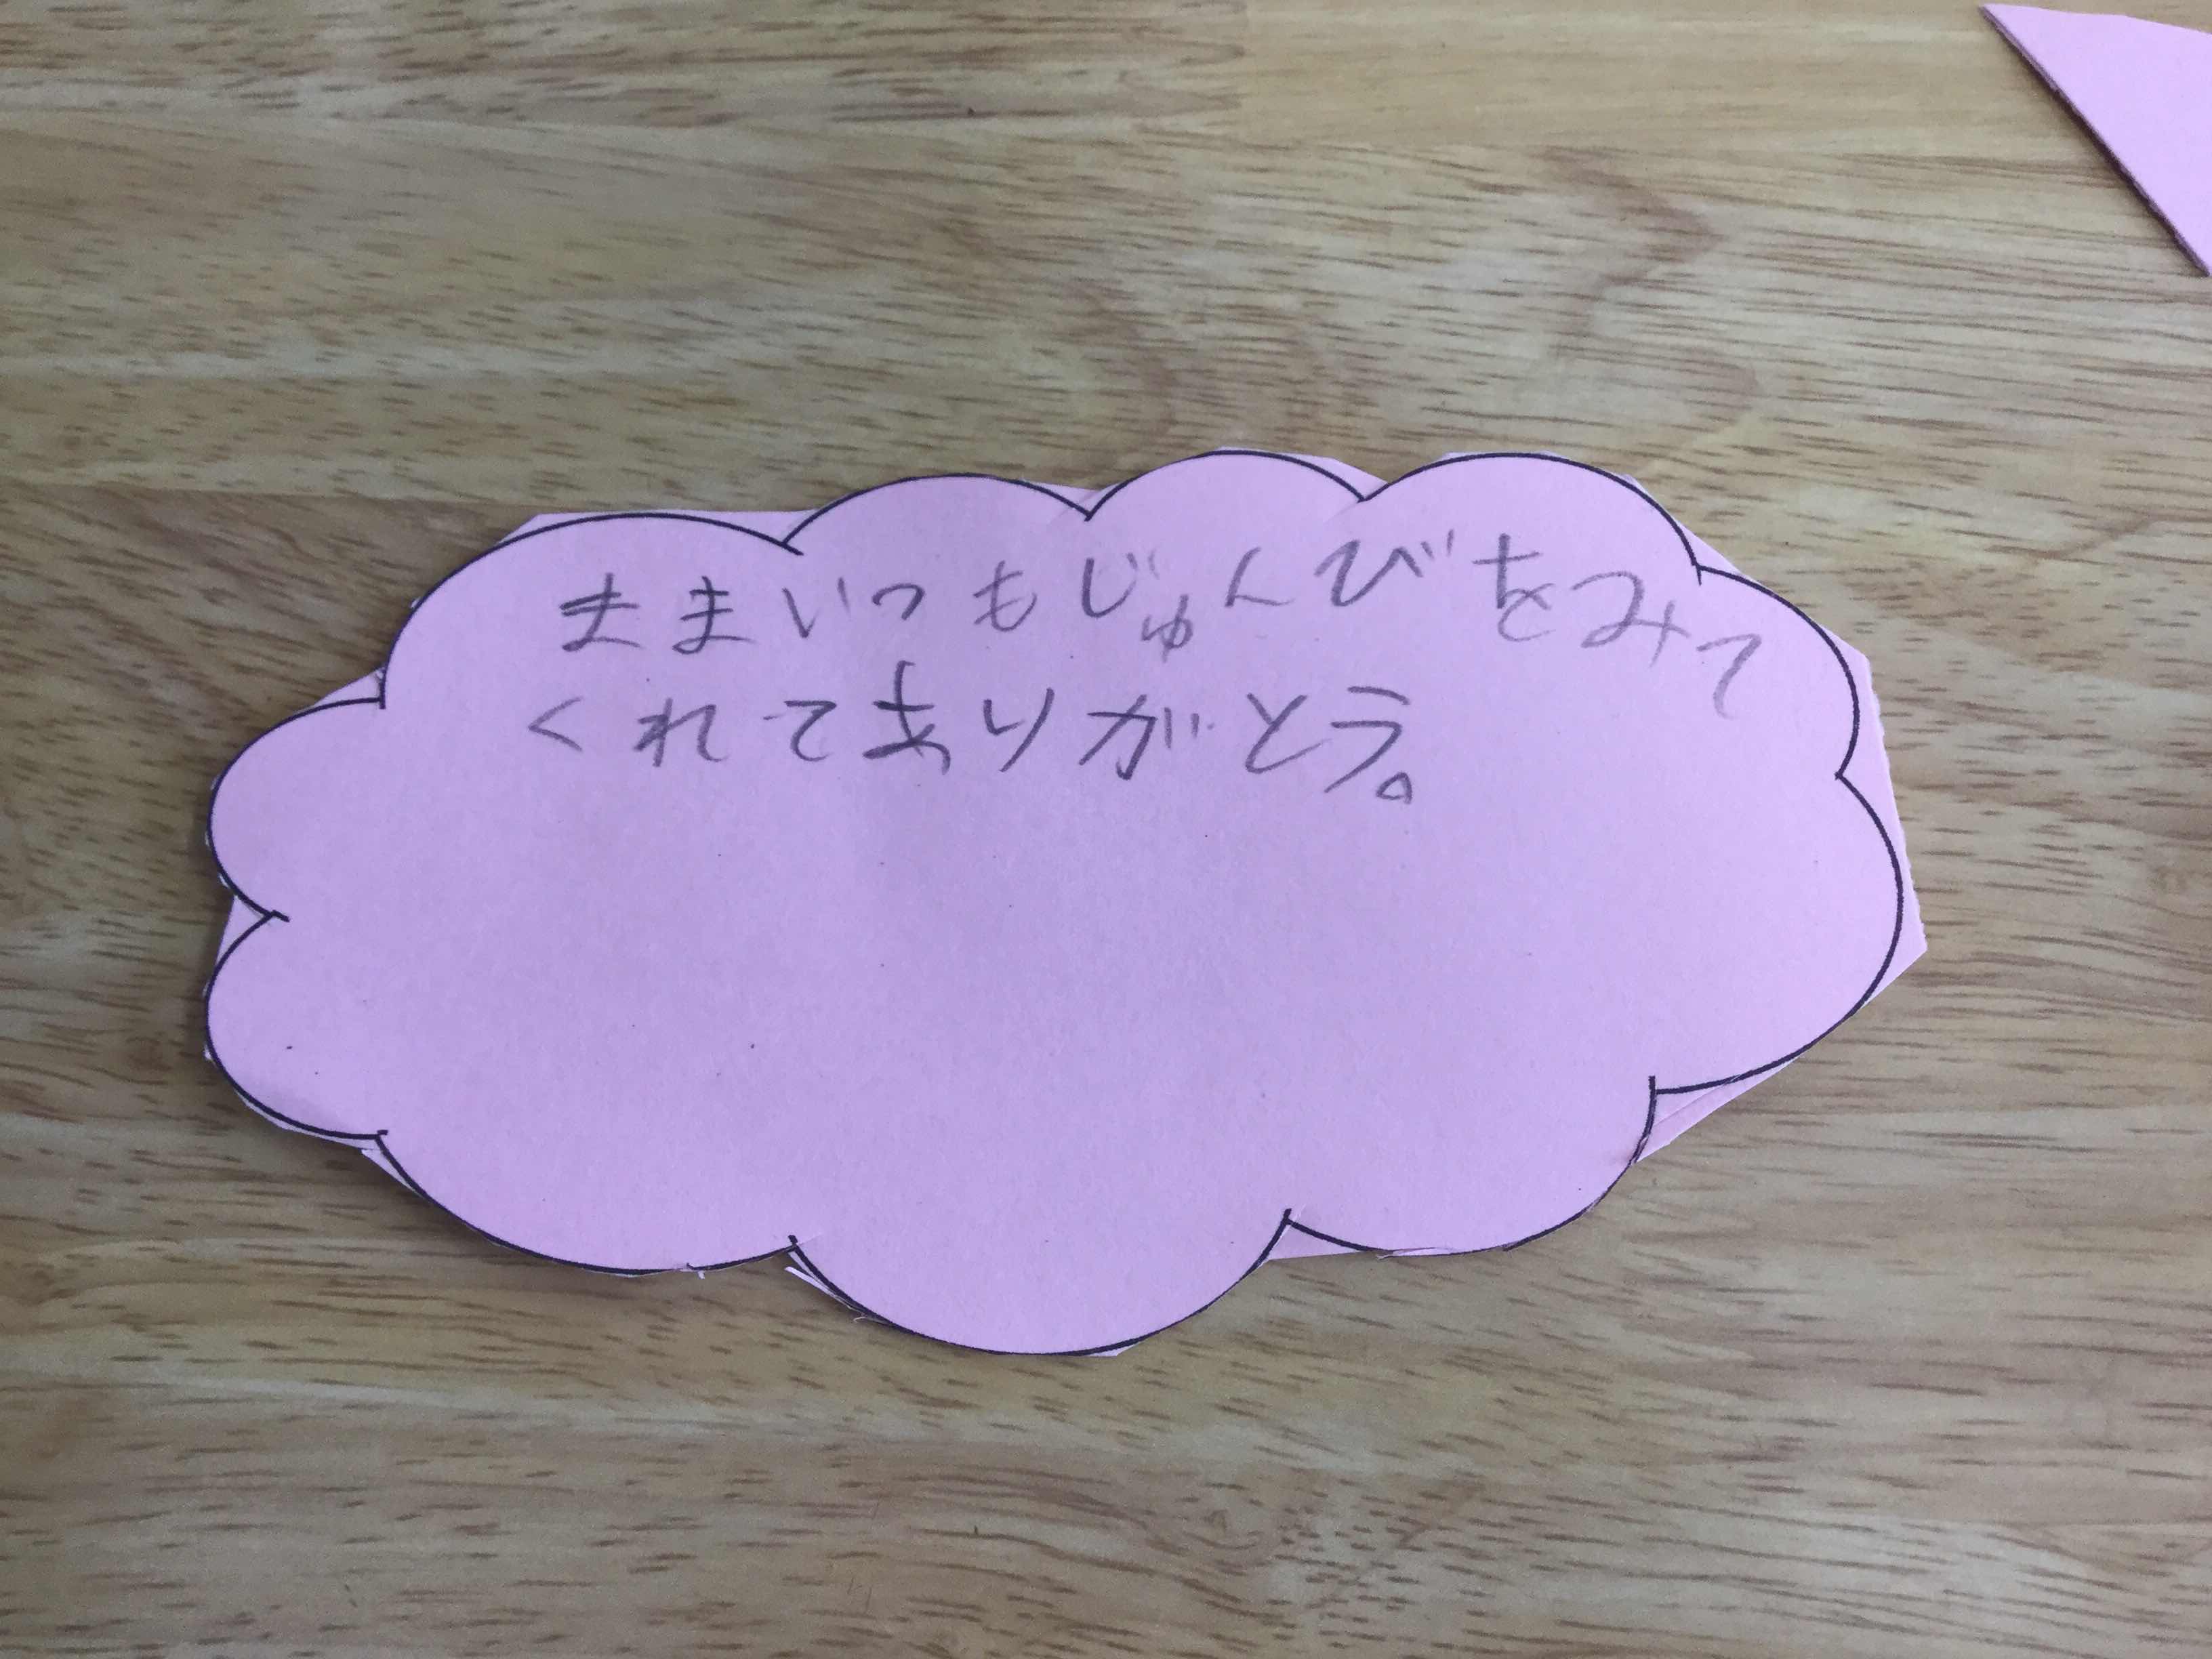 ままいつもじゅんびをみて
くれてありがとう。